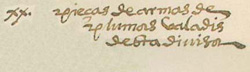 xx. 2 pieças de armas de
2 plumas valadis
desta divisa